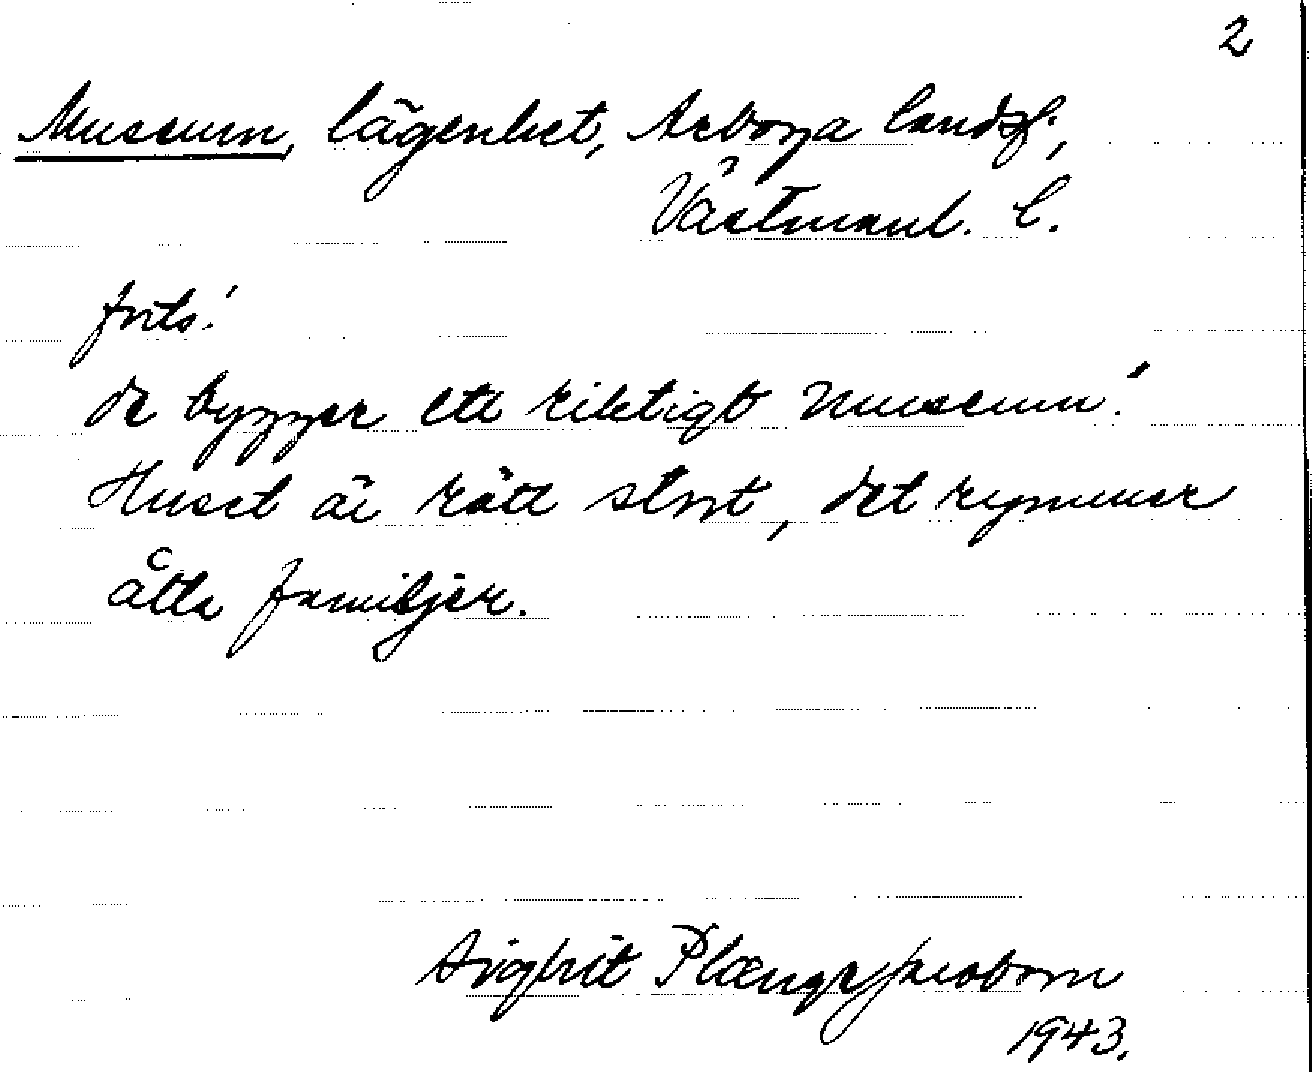 2
Museum, lägenhet, Arboga landsf.,
Västmanl. l.
forts.'
de bygger ett riktigt museum.'
Huset är rätt stort, det rymmer
åtta familjer.
Sigbrit Plænge Jacobson
1943.